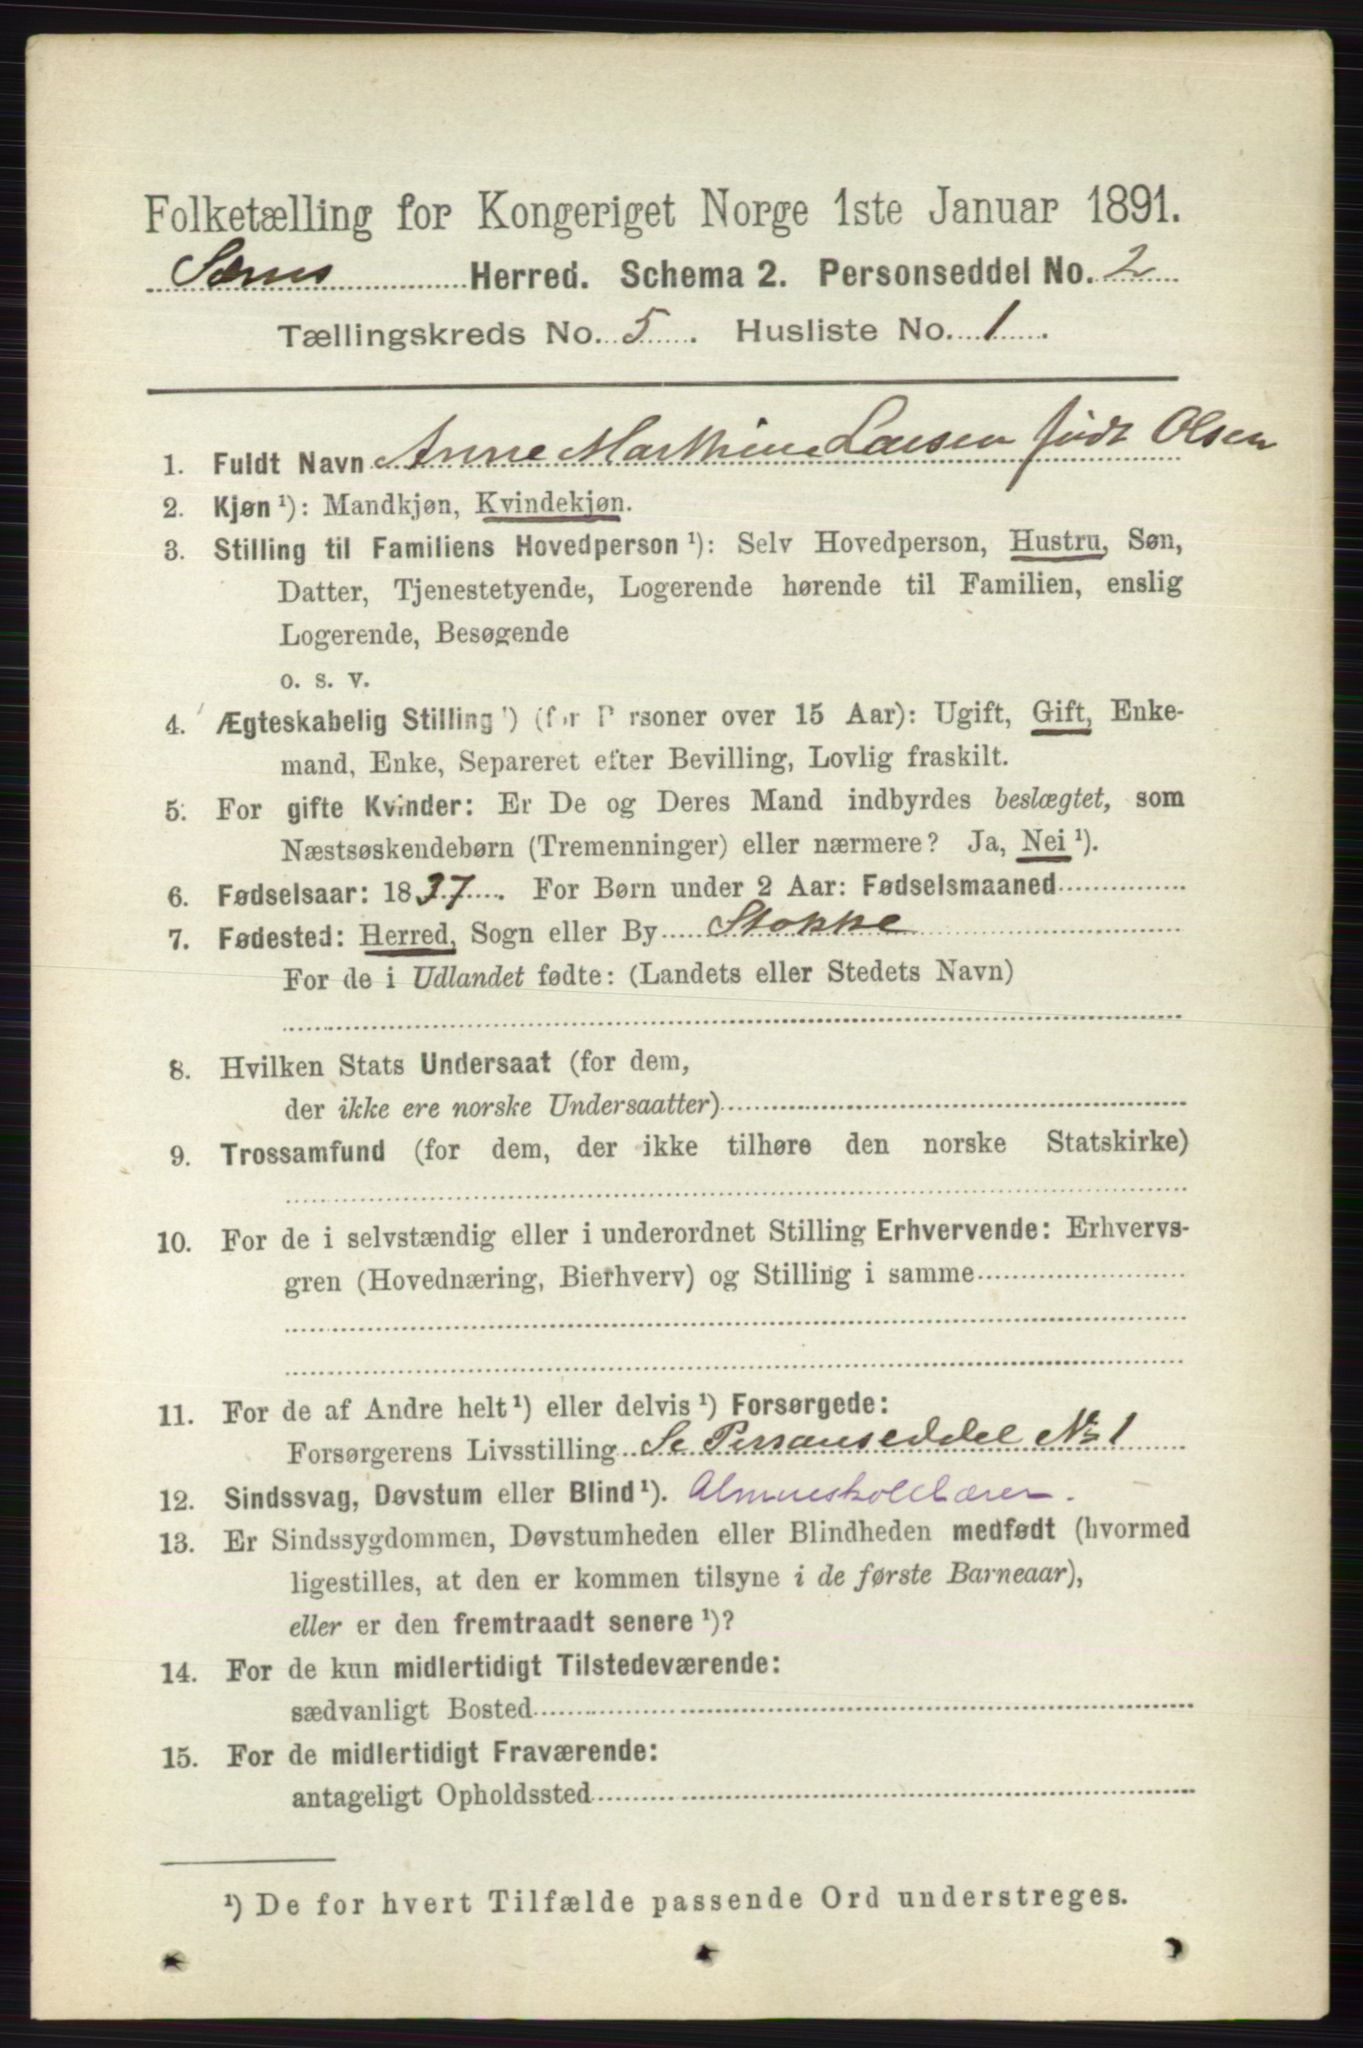 Folketælling for Kongeriget Norge 1ste Januar 1891.
Sems Herred. Schema 2. Personseddel No. 2
Tællingskreds No. 5. Husliste No. 1.
1. Fuldt Navn Anne Marthine Larsen født Olsen
2. Kjøn¹): Mandkjøn, Kvindekjøn.
3. Stilling til Familiens Hovedperson¹): Selv Hovedperson, Hustru, Søn,
Datter, Tjenestetyende, Logerende hørende til Familien, enslig
Logerende, Besøgende
o. s. v.
4. Ægteskabelig Stilling¹) (for Personer over 15 Aar): Ugift, Gift, Enke-
mand, Enke, Separeret efter Bevilling, Lovlig fraskilt.
5. For gifte Kvinder: Er De og Deres Mand indbyrdes beslægtet, som
Næstsøskendebørn (Tremenninger) eller nærmere? Ja, Nei¹).
6. Fødselsaar: 1837. For Børn under 2 Aar: Fødselsmaaned
7. Fødested: Herred, Sogn eller By Stokke
For de i Udlandet fødte: (Landets eller Stedets Navn)
8. Hvilken Stats Undersaat (for dem,
der ikke ere norske Undersaatter)
9. Trossamfund (for dem, der ikke tilhøre den norske Statskirke)
10. For de i selvstændig eller i underordnet Stilling Erhvervende: Erhvervs-
gren (Hovednæring, Bierhverv) og Stilling i samme
11. For de af Andre helt¹) eller delvis¹) Forsørgede:
Forsørgerens Livsstilling Se Personseddel No 1
12. Sindssvag, Døvstum eller Blind¹). Almueskolelærer.
13. Er Sindssygdommen, Døvstumheden eller Blindheden medfødt (hvormed
ligestilles, at den er kommen tilsyne i de første Barneaar),
eller er den fremtraadt senere¹)?
14. For de kun midlertidigt Tilstedeværende:
sædvanligt Bosted
15. For de midlertidigt Fraværende:
antageligt Opholdssted
¹) De for hvert Tilfælde passende Ord understreges.